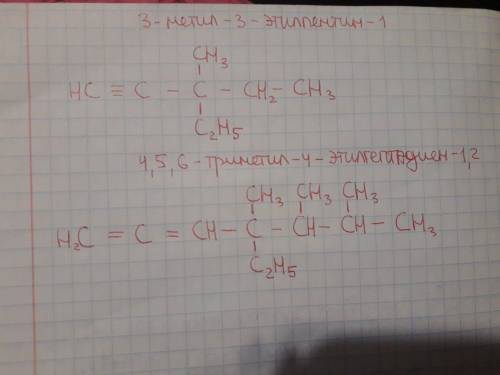 3-метил-3-этилпентин-1
CH₃
HC ≡ C - C - CH₂ - CH₃
C₂H₅
4,5,6-триметил-4-этилгептадиен-1,2
CH₃ CH₃ CH₃
H₂C = C = CH - C - CH - CH - CH₃
C₂H₅